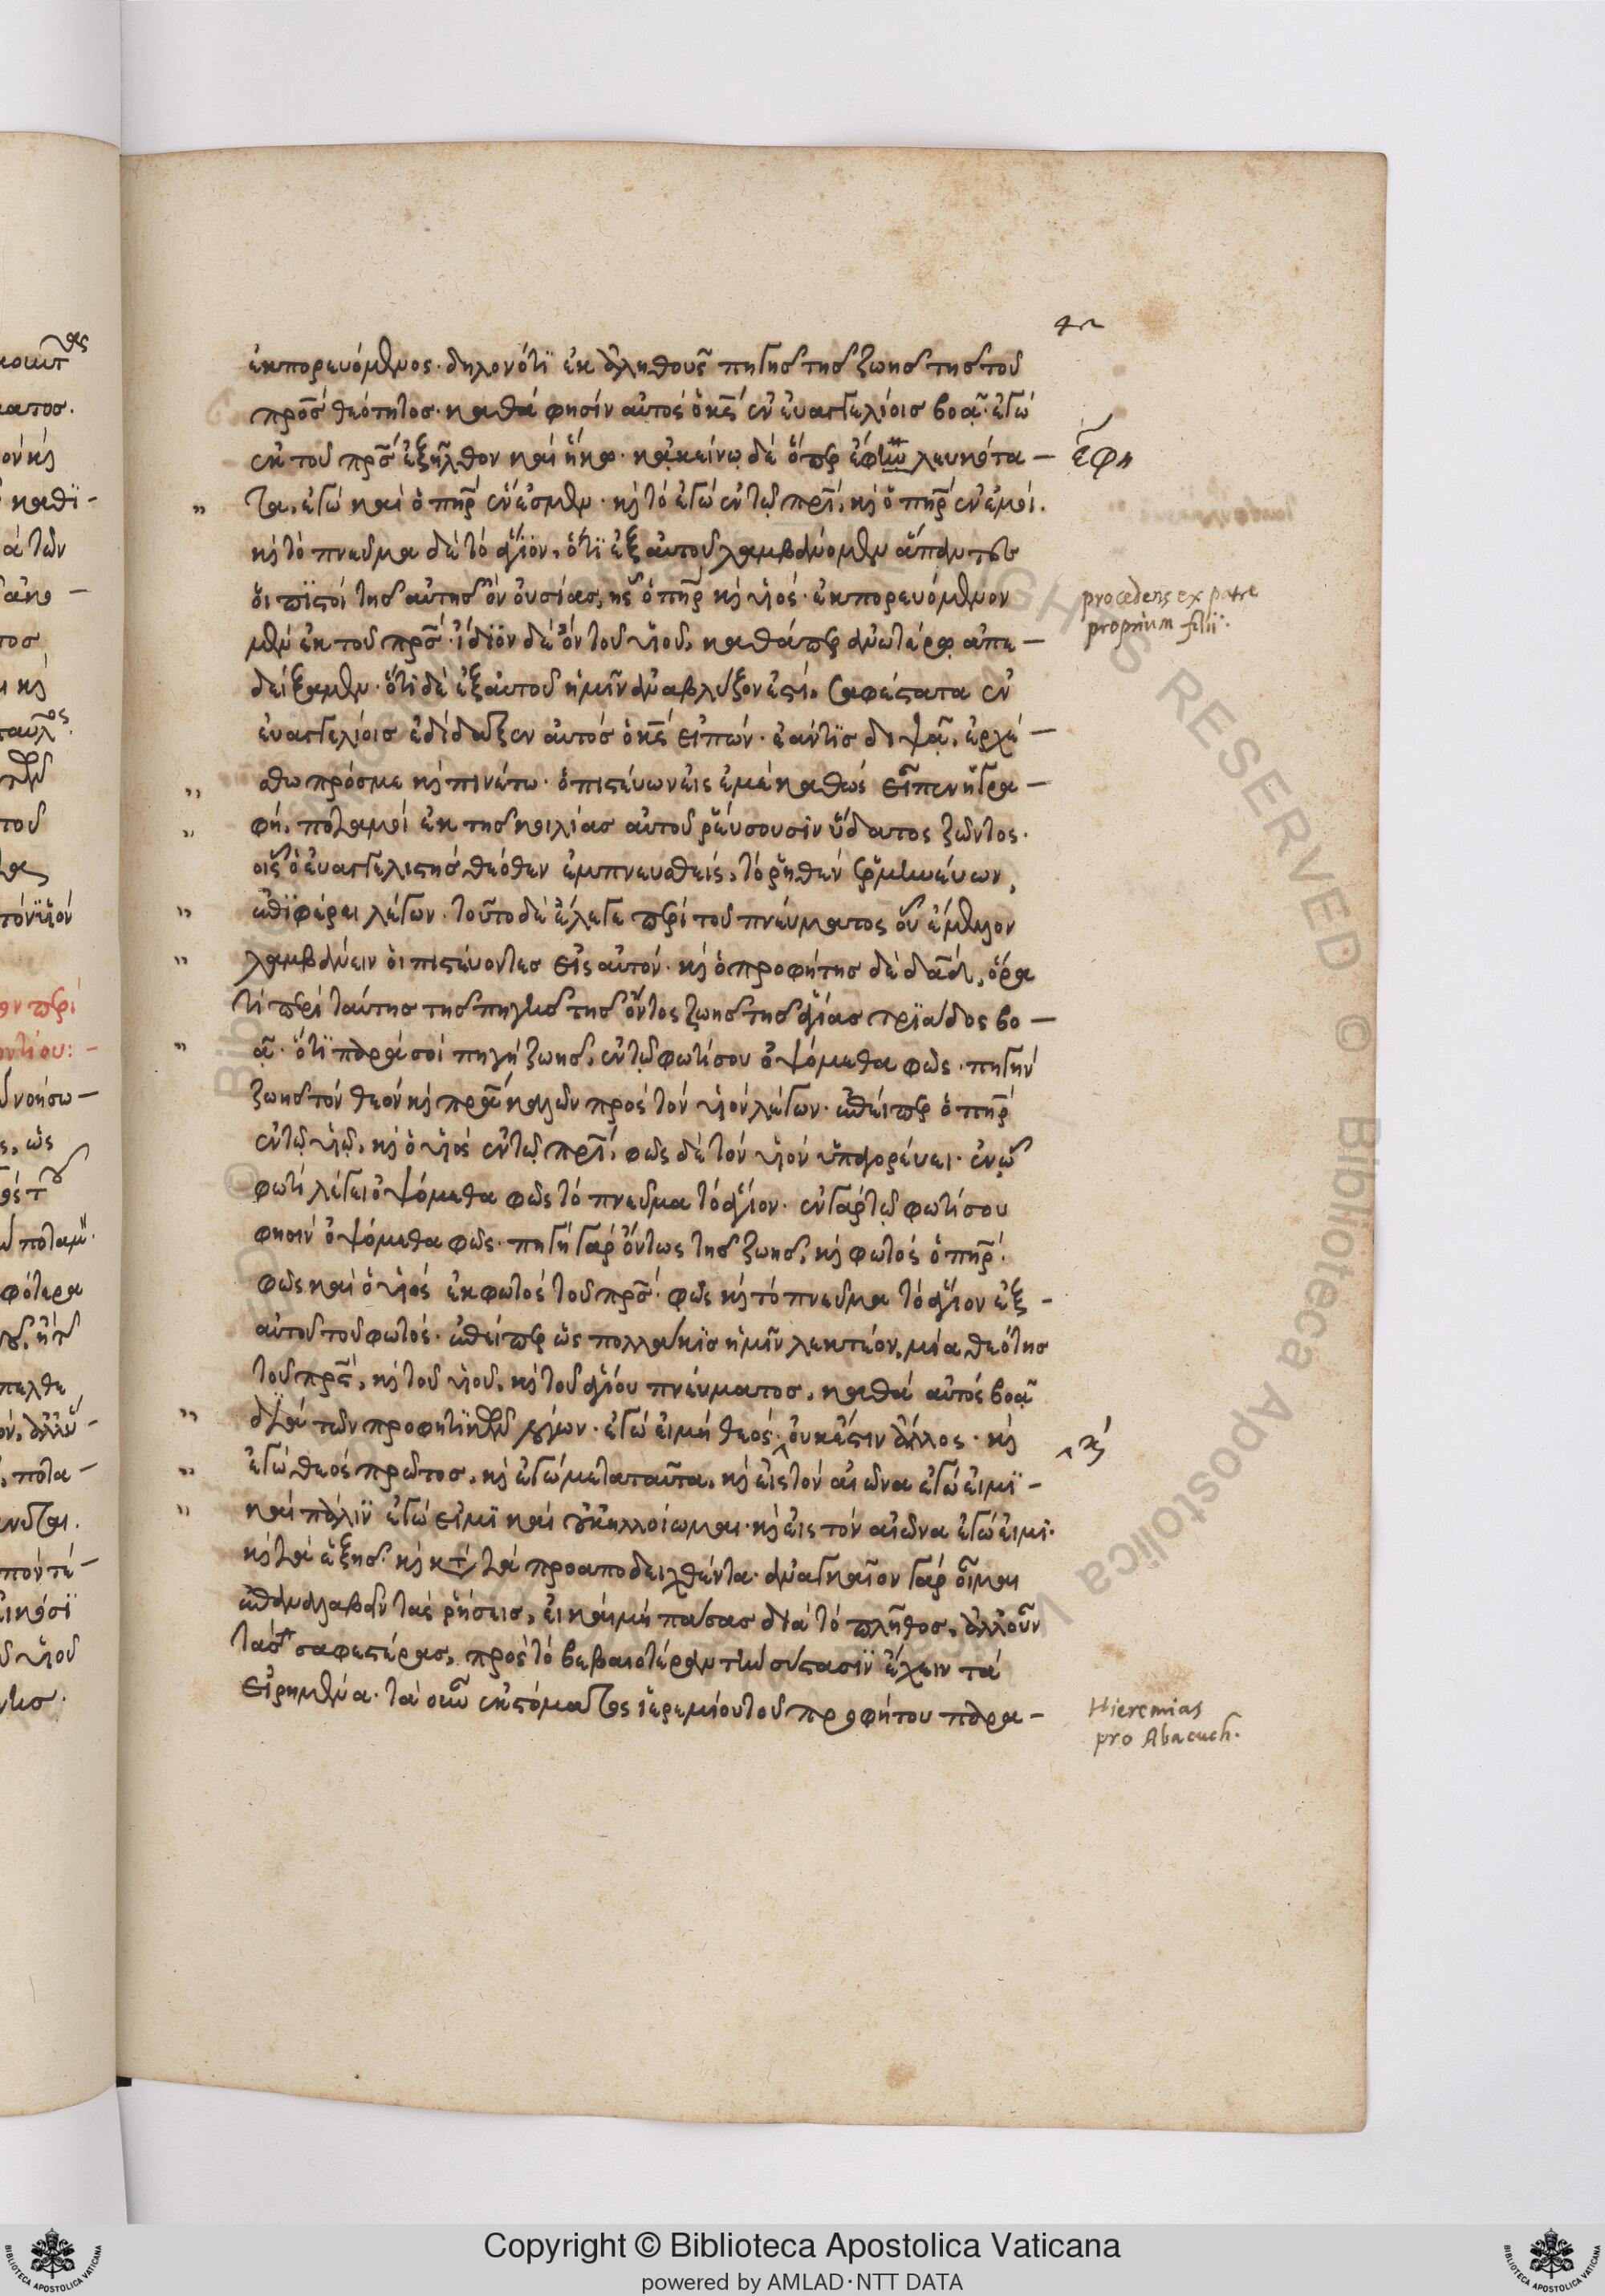 ἐκπορευόμενος· δηλονότι ἐκ ἀληθοῦς πηγῆς τῆς ζωῆς τῆς τοῦ
πρς θεότητος· καθά φησὶν αὐτὸς ὁ κς ἐν εὐαγγελίοις βοᾷ· ἐγὼ
ἐκ τοῦ πρς ἐξῆλθον καὶ ἥκω· κἀκείνῳ δὲ
ἔφη
τα, ἐγὼ καὶ ὁ πηρ ἕν ἐσμεν· καὶ τὸ ἐγὼ ἐν τῷ πρι, καὶ ὁ πηρ ἐν ἐμοί.
καὶ τὸ πνεῦμα δὲ τὸ ἅγιον, ὅτι ἐξ αὐτοῦ λαμβάνομεν ἅπαντες
οἱ πιστοὶ τῆς αὐτῆς ὂν οὐσίας, ἧς ὁ πηρ καὶ υἱός· ἐκπορευόμενον
procedens ex patre
proprium filii.
μὲν ἐκ τοῦ πρς· ἴδιον δὲ ὂν τοῦ υἱοῦ, καθάπερ ἀνωτέρω ἀπε-
δείξαμεν· ὅτι δὲ ἐξ αὐτοῦ ἡμῖν ἀναβλύζον ἐστί, σαφέστατα ἐν
εὐαγγελίοις ἐδίδαξεν αὐτὸς ὁ κς εἰπών· ἐάν τις διψᾷ, ἐρχέ-
σθω πρός με καὶ πινέτω· ὁ πιστεύων εἰς ἐμὲ καθὼς εἶπεν ἡ γρα-
φή, ποταμοὶ ἐκ τῆς κοιλίας αὐτοῦ ῥεύσουσιν ὕδατος ζῶντος·
οἷς ὁ εὐαγγελιστὴς θεόθεν ἐμπνευσθείς, τὸ ῥηθὲν ἑρμηνεύων,
ἐπιφέρει λέγων· τοῦτο δὲ ἔλεγε περὶ τοῦ πνεύματος οὗ ἔμελλον
λαμβάνειν οἱ πιστεύοντες εἰς αὐτόν· καὶ ὁ προφήτης δὲ δαδ, ὅρα
τί περὶ ταύτης τῆς πηγῆς τῆς ὄντος ζωῆς τῆς ἁγίας τριάδος βο-
ᾷ· ὅτι παρὰ σοὶ πηγὴ ζωῆς, ἐν τῷ φωτί σου ὀψόμεθα φῶς· πηγὴν
ζωῆς τὸν θεὸν καὶ πρα καλῶν πρὸς τὸν υἱὸν λέγων· ἐπείπερ ὁ πηρ
ἐν τῷ υἱῷ, καὶ ὁ υἱὸς ἐν τῷ πρι, φῶς δὲ τὸν υἱὸν ὑπαγορεύει· ἐν ᾧ
φωτὶ λέγει ὀψόμεθα φῶς τὸ πνεῦμα τὸ ἅγιον· ἐν γὰρ τῷ φωτί σου
φησὶν ὀψόμεθα φῶς· πηγὴ γὰρ ὄντως τῆς ζωῆς, καὶ φωτὸς ὁ πηρ·
φῶς καὶ ὁ υἱὸς ἐκ φωτὸς τοῦ πρς· φῶς καὶ τὸ πνεῦμα τὸ ἅγιον ἐξ-
αὐτοῦ τοῦ φωτός· ἐπείπερ ὡς πολλάκις ἡμῖν λεκτέον, μία θεότης
τοῦ πρς, καὶ τοῦ υἱοῦ, καὶ τοῦ ἁγίου πνεύματος, καθὰ αὐτὸς βοᾷ
διὰ τῶν προφητικῶν λόγων· ἐγώ εἰμι θεός· οὐκ ἔστιν ἄλλος· καὶ
καὶ
ἐγὼ θεὸς πρῶτος, καὶ ἐγὼ μετὰ ταῦτα, καὶ εἰς τὸν αἰῶνα ἐγώ εἰμι-
καὶ πάλιν ἐγώ εἰμι καὶ οὐκ ἠλλοίωμαι· καὶ εἰς τὸν αἰῶνα ἐγώ εἰμι·
καὶ τὰ ἑξῆς· καὶ τὰ προαποδειχθέντα· ἀναγκαῖον γὰρ οἶμαι
ἐπαναλαβεῖν τὰς ῥήσεις, εἰ καὶ μὴ πάσας διὰ τὸ πλῆθος, ἀλλ' οὖν
τὰς σαφεστέρας, πρὸς τὸ βεβαιοτέραν τὴν σύστασιν ἔχειν τὰ
εἰρημένα· τὰ οὖν ἐκ στόματος ἱερεμίου τοῦ προφήτου παρα-
Hieremias
pro Abacuch.
Copyright © Biblioteca Apostolica Vaticana
powered by AMLAD·NTT DATA